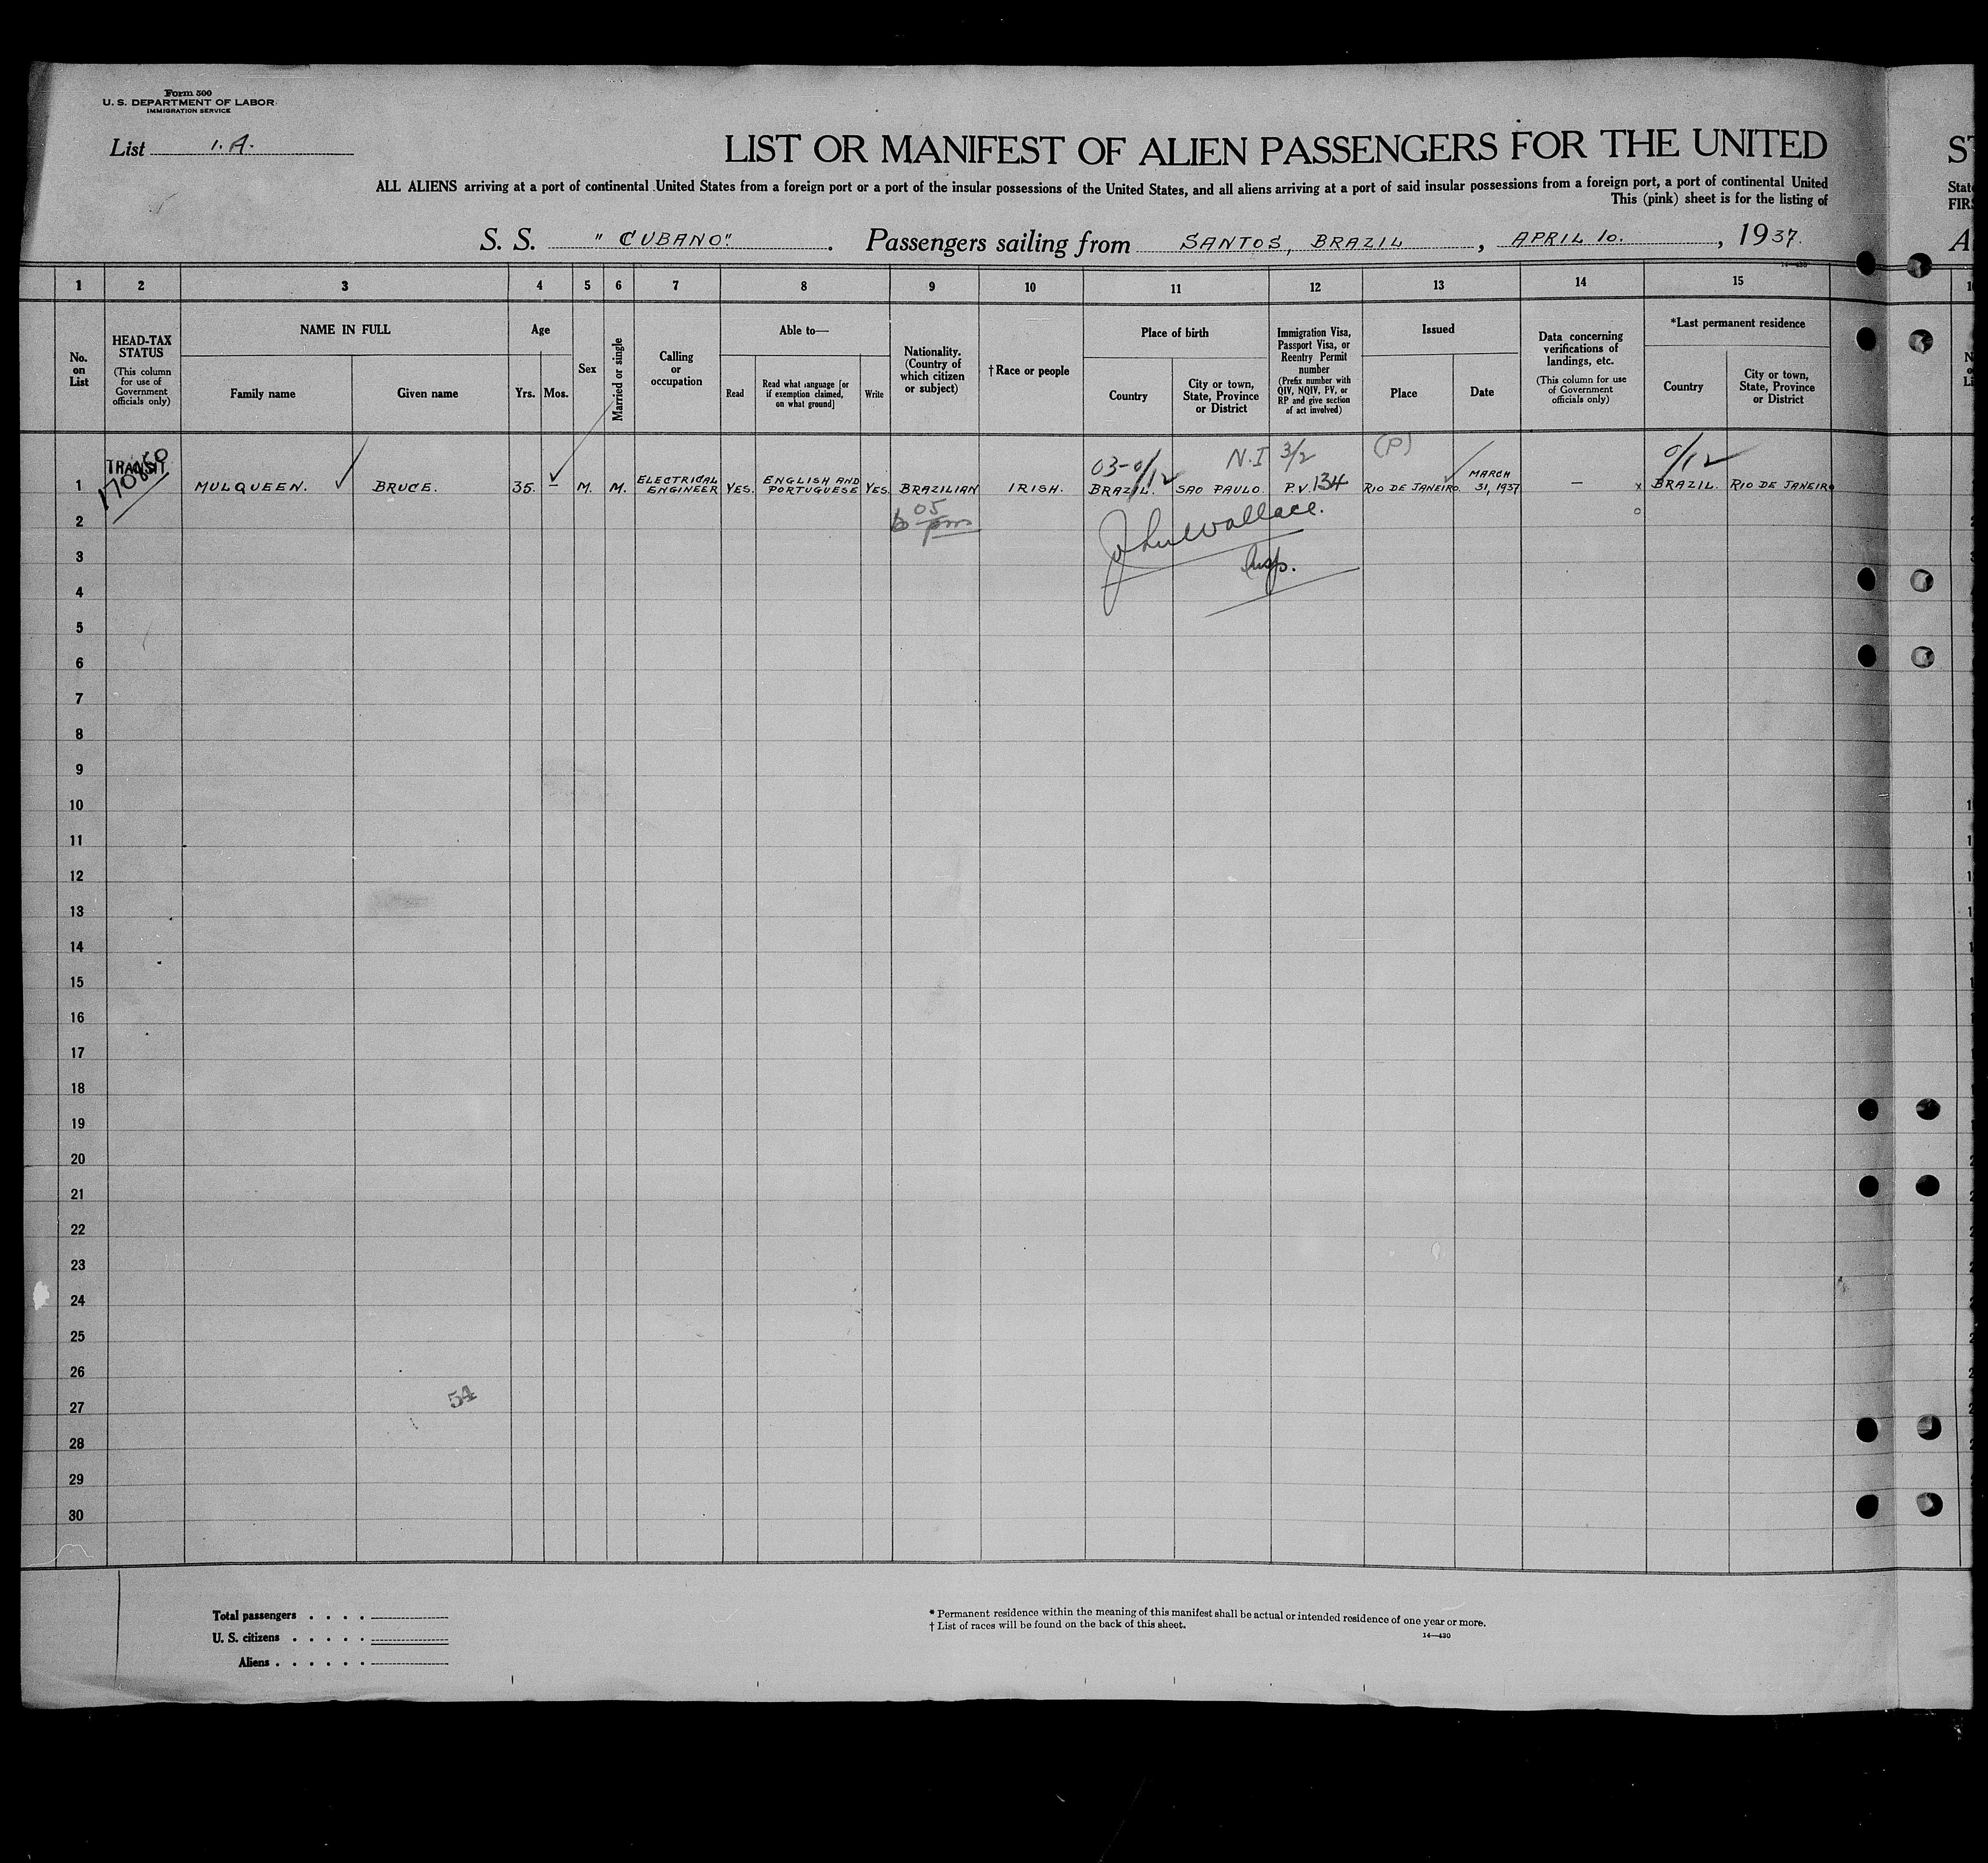 Form 500
U. S. DEPARTMENT OF LABOR
IMMIGRATION SERVICE
List 1. A.
LIST OR MANIFEST OF ALIEN PASSENGERS FOR THE UNITED
ALL ALIENS arriving at a port of continental United States from a foreign port or a port of the insular possessions of the United States, and all aliens arriving at a port of said insular possessions from a foreign port, a port of continental United
This (pink) sheet is for the listing of
S. S. "CUBANO". Passengers sailing from SANTOS, BRAZIL, APRIL 10., 1937.
1 2 3 4 5 6 7 8 9 10 11 12 13 14 15
No. on List
HEAD-TAX STATUS
(This column for use of Government officials only)
NAME IN FULL
Family name
Given name
Age
Yrs.
Mos.
Sex
Married or single
Calling or occupation
Able to—
Read
Read what language [or if exemption claimed, on what ground]
Write
Nationality. (Country of which citizen or subject)
†Race or people
Place of birth
Country
City or town, State, Province or District
Immigration Visa, Passport Visa, or Reentry Permit number
(Prefix number with QIV, NQIV, PV, or RP and give section of act involved)
Issued
Place
Date
Data concerning verifications of landings, etc.
(This column for use of Government officials only)
*Last permanent residence
Country
City or town, State, Province or District
TRANSIT
N.I 3/2 (P)
1 MULQUEEN. BRUCE. 35. — M. M. ELECTRICAL ENGINEER YES. ENGLISH AND PORTUGUESE YES. BRAZILIAN IRISH. BRAZIL. SAO PAULO. P.V. 134 RIO DE JANEIRO. MARCH 31, 1937 — x BRAZIL. RIO DE JANEIRO
05
2
John Wallace.
3
Insp.
4
5
6
7
8
9
10
11
12
13
14
15
16
17
18
19
20
21
22
23
24
25
26
54
27
28
29
30
Total passengers . . . .
U. S. citizens . . . . .
Aliens . . . . . .
* Permanent residence within the meaning of this manifest shall be actual or intended residence of one year or more.
† List of races will be found on the back of this sheet.
14—430